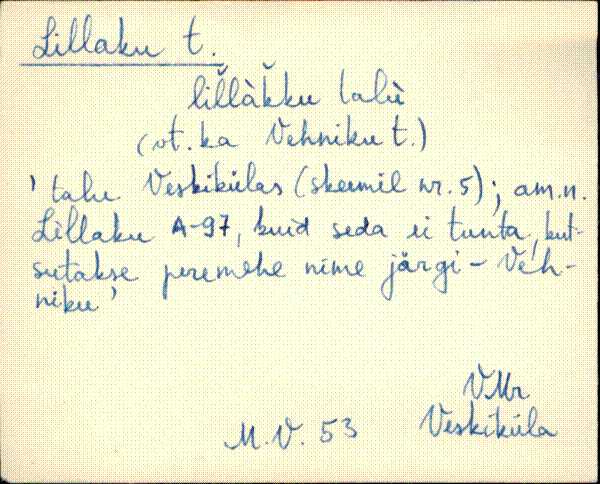 Lillaku t.
lil̆làk̆ku talù
(vt. ka Vehniku t.)
'talu Veskikülas (skeemil nr. 5); am.n.
Lillaku A-97, kuid seda ei tunta, kut-
sutakse peremehe nime järgi - Veh-
niku'
VMr
M.V. 53 Veskiküla